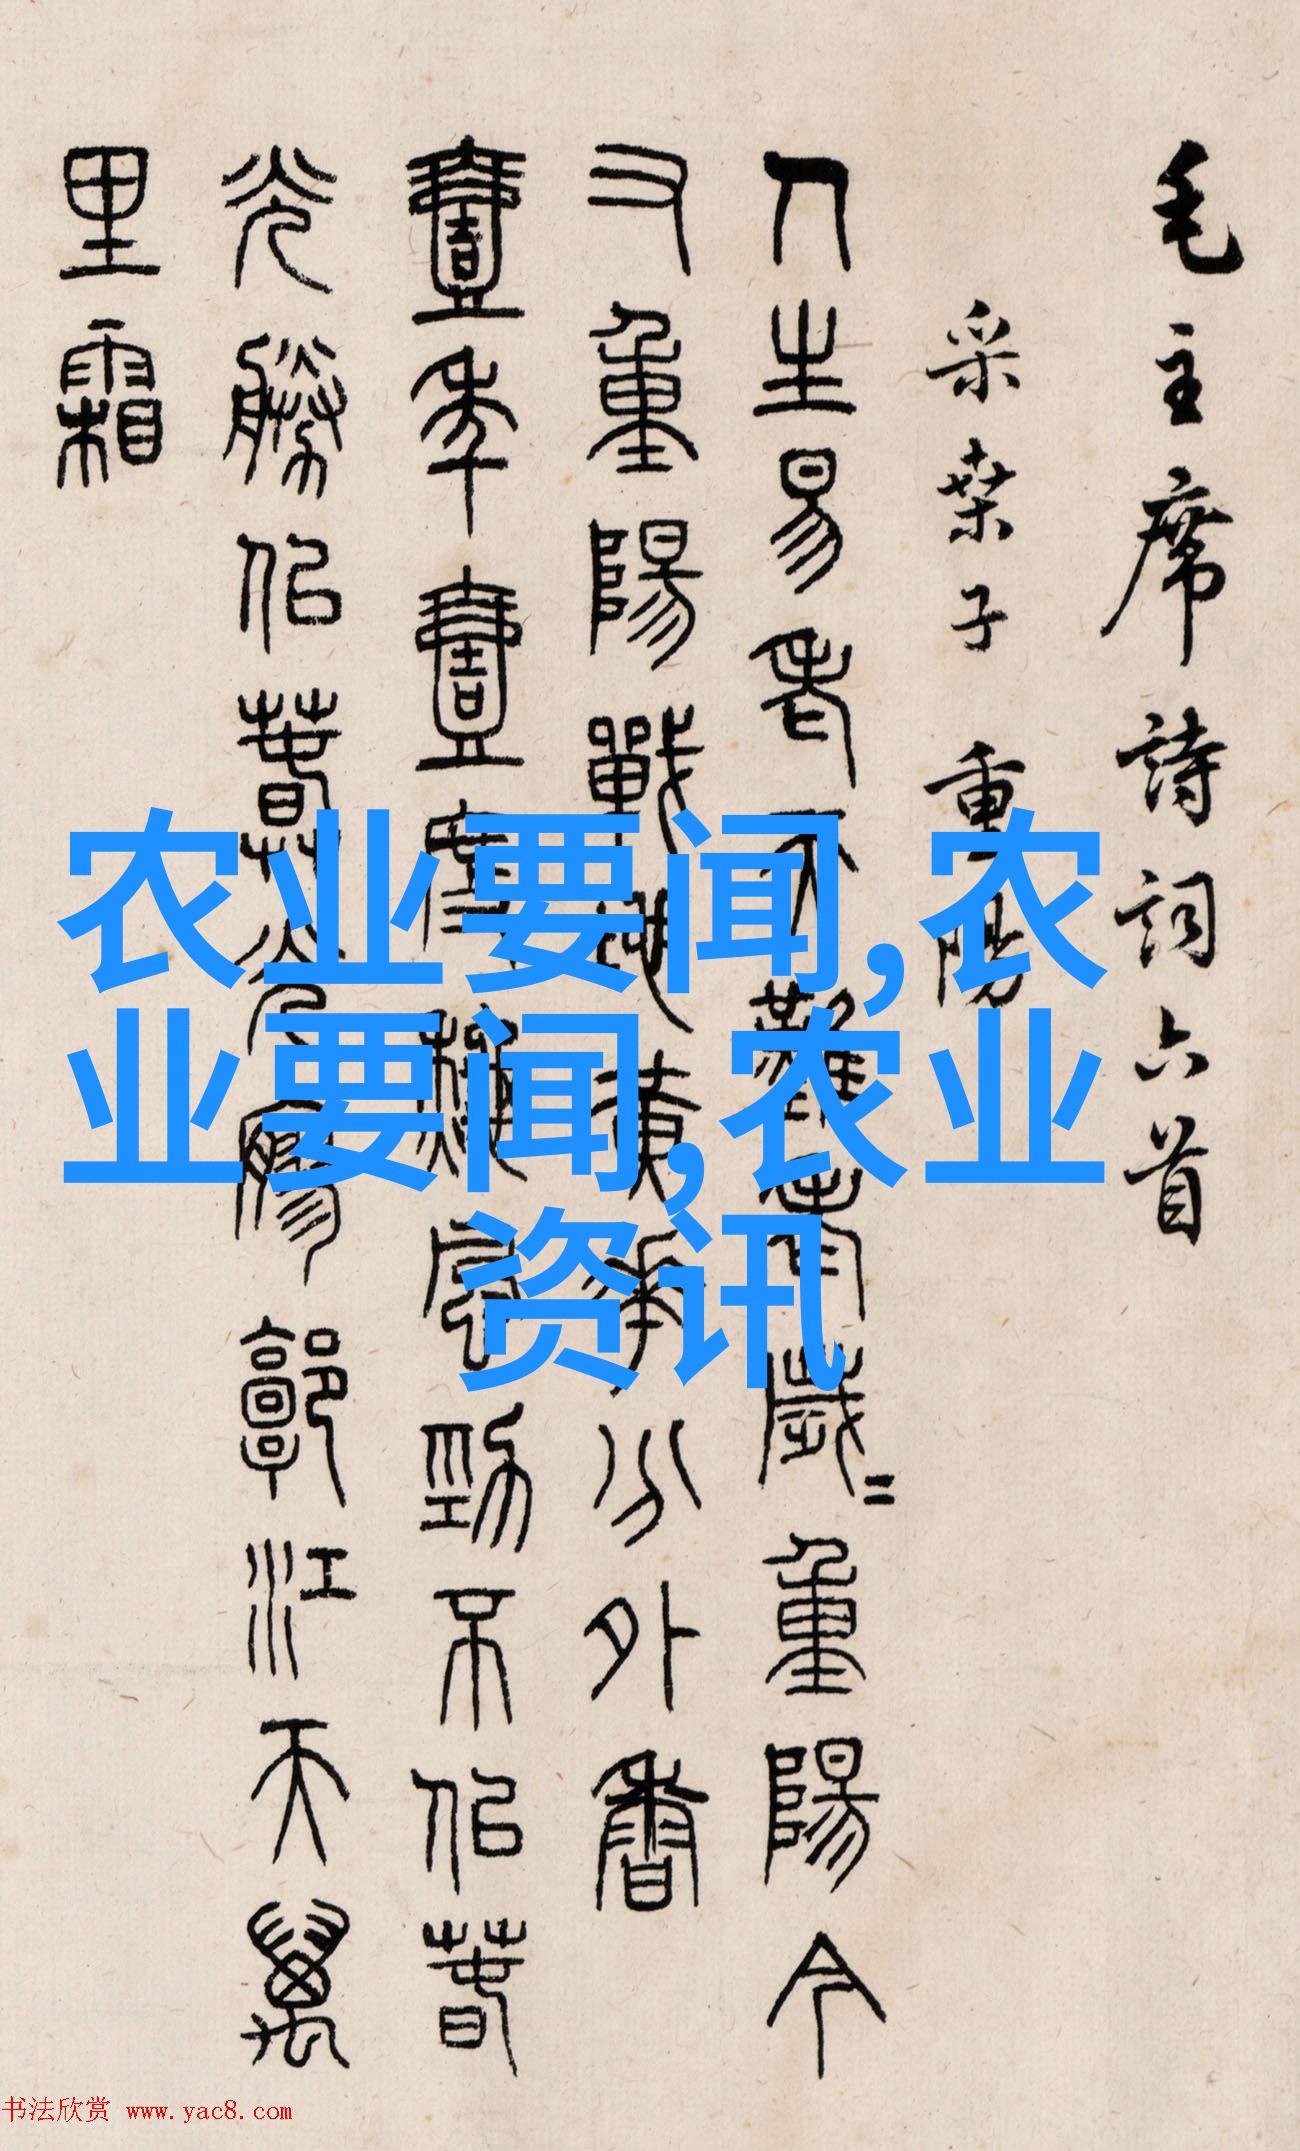 毛主席詩詞六首
采桑子 重陽
人生易老天難老歲=重陽今
又重陽戰地黃華分外香
壹年壹度秋風勁不似春
光勝似春光寥郭江天萬
里霜
农业要闻,农
业要闻,农业
资讯
书法欣赏 www.yac8.com